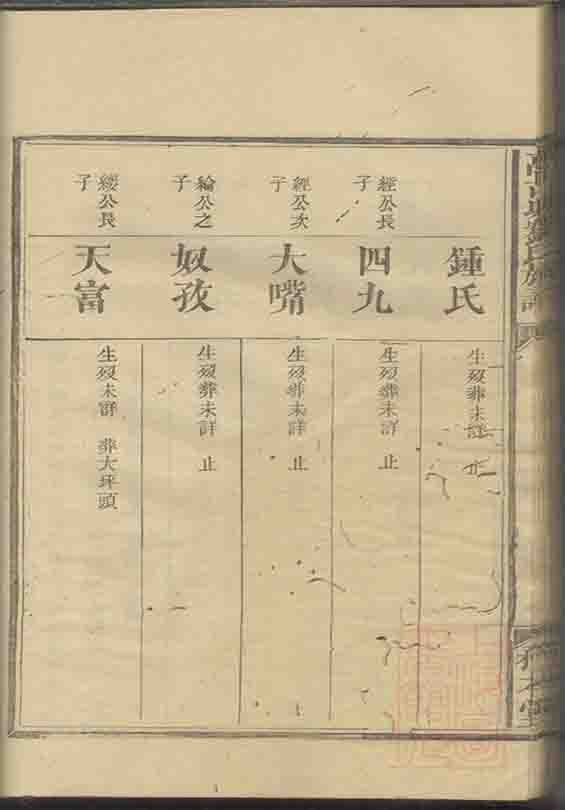 鍾氏
生歿葬未詳 止
經公長子
四九
生歿葬未詳 止
經公次子
大嘴
生歿葬未詳 止
綸公之子
奴孜
生歿葬未詳 止
綏公長子
天富
生歿未詳 葬大坪頭